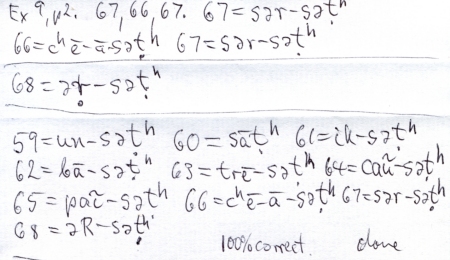 Ex 9, p2. 67, 66, 67. 67=sər-səṭʰ
66=cʰē-ā-səṭʰ 67=sər-səṭʰ
68=əṛ-səṭʰ
59=un-səṭʰ 60=sāṭʰ 61=ik-səṭʰ
62=bā-səṭʰ 63=trē-səṭʰ 64=caũ-səṭʰ
65=paĩ-səṭʰ 66=cʰē-ā-səṭʰ 67=sər-səṭʰ
68=əR-səṭʰ
100% correct. done